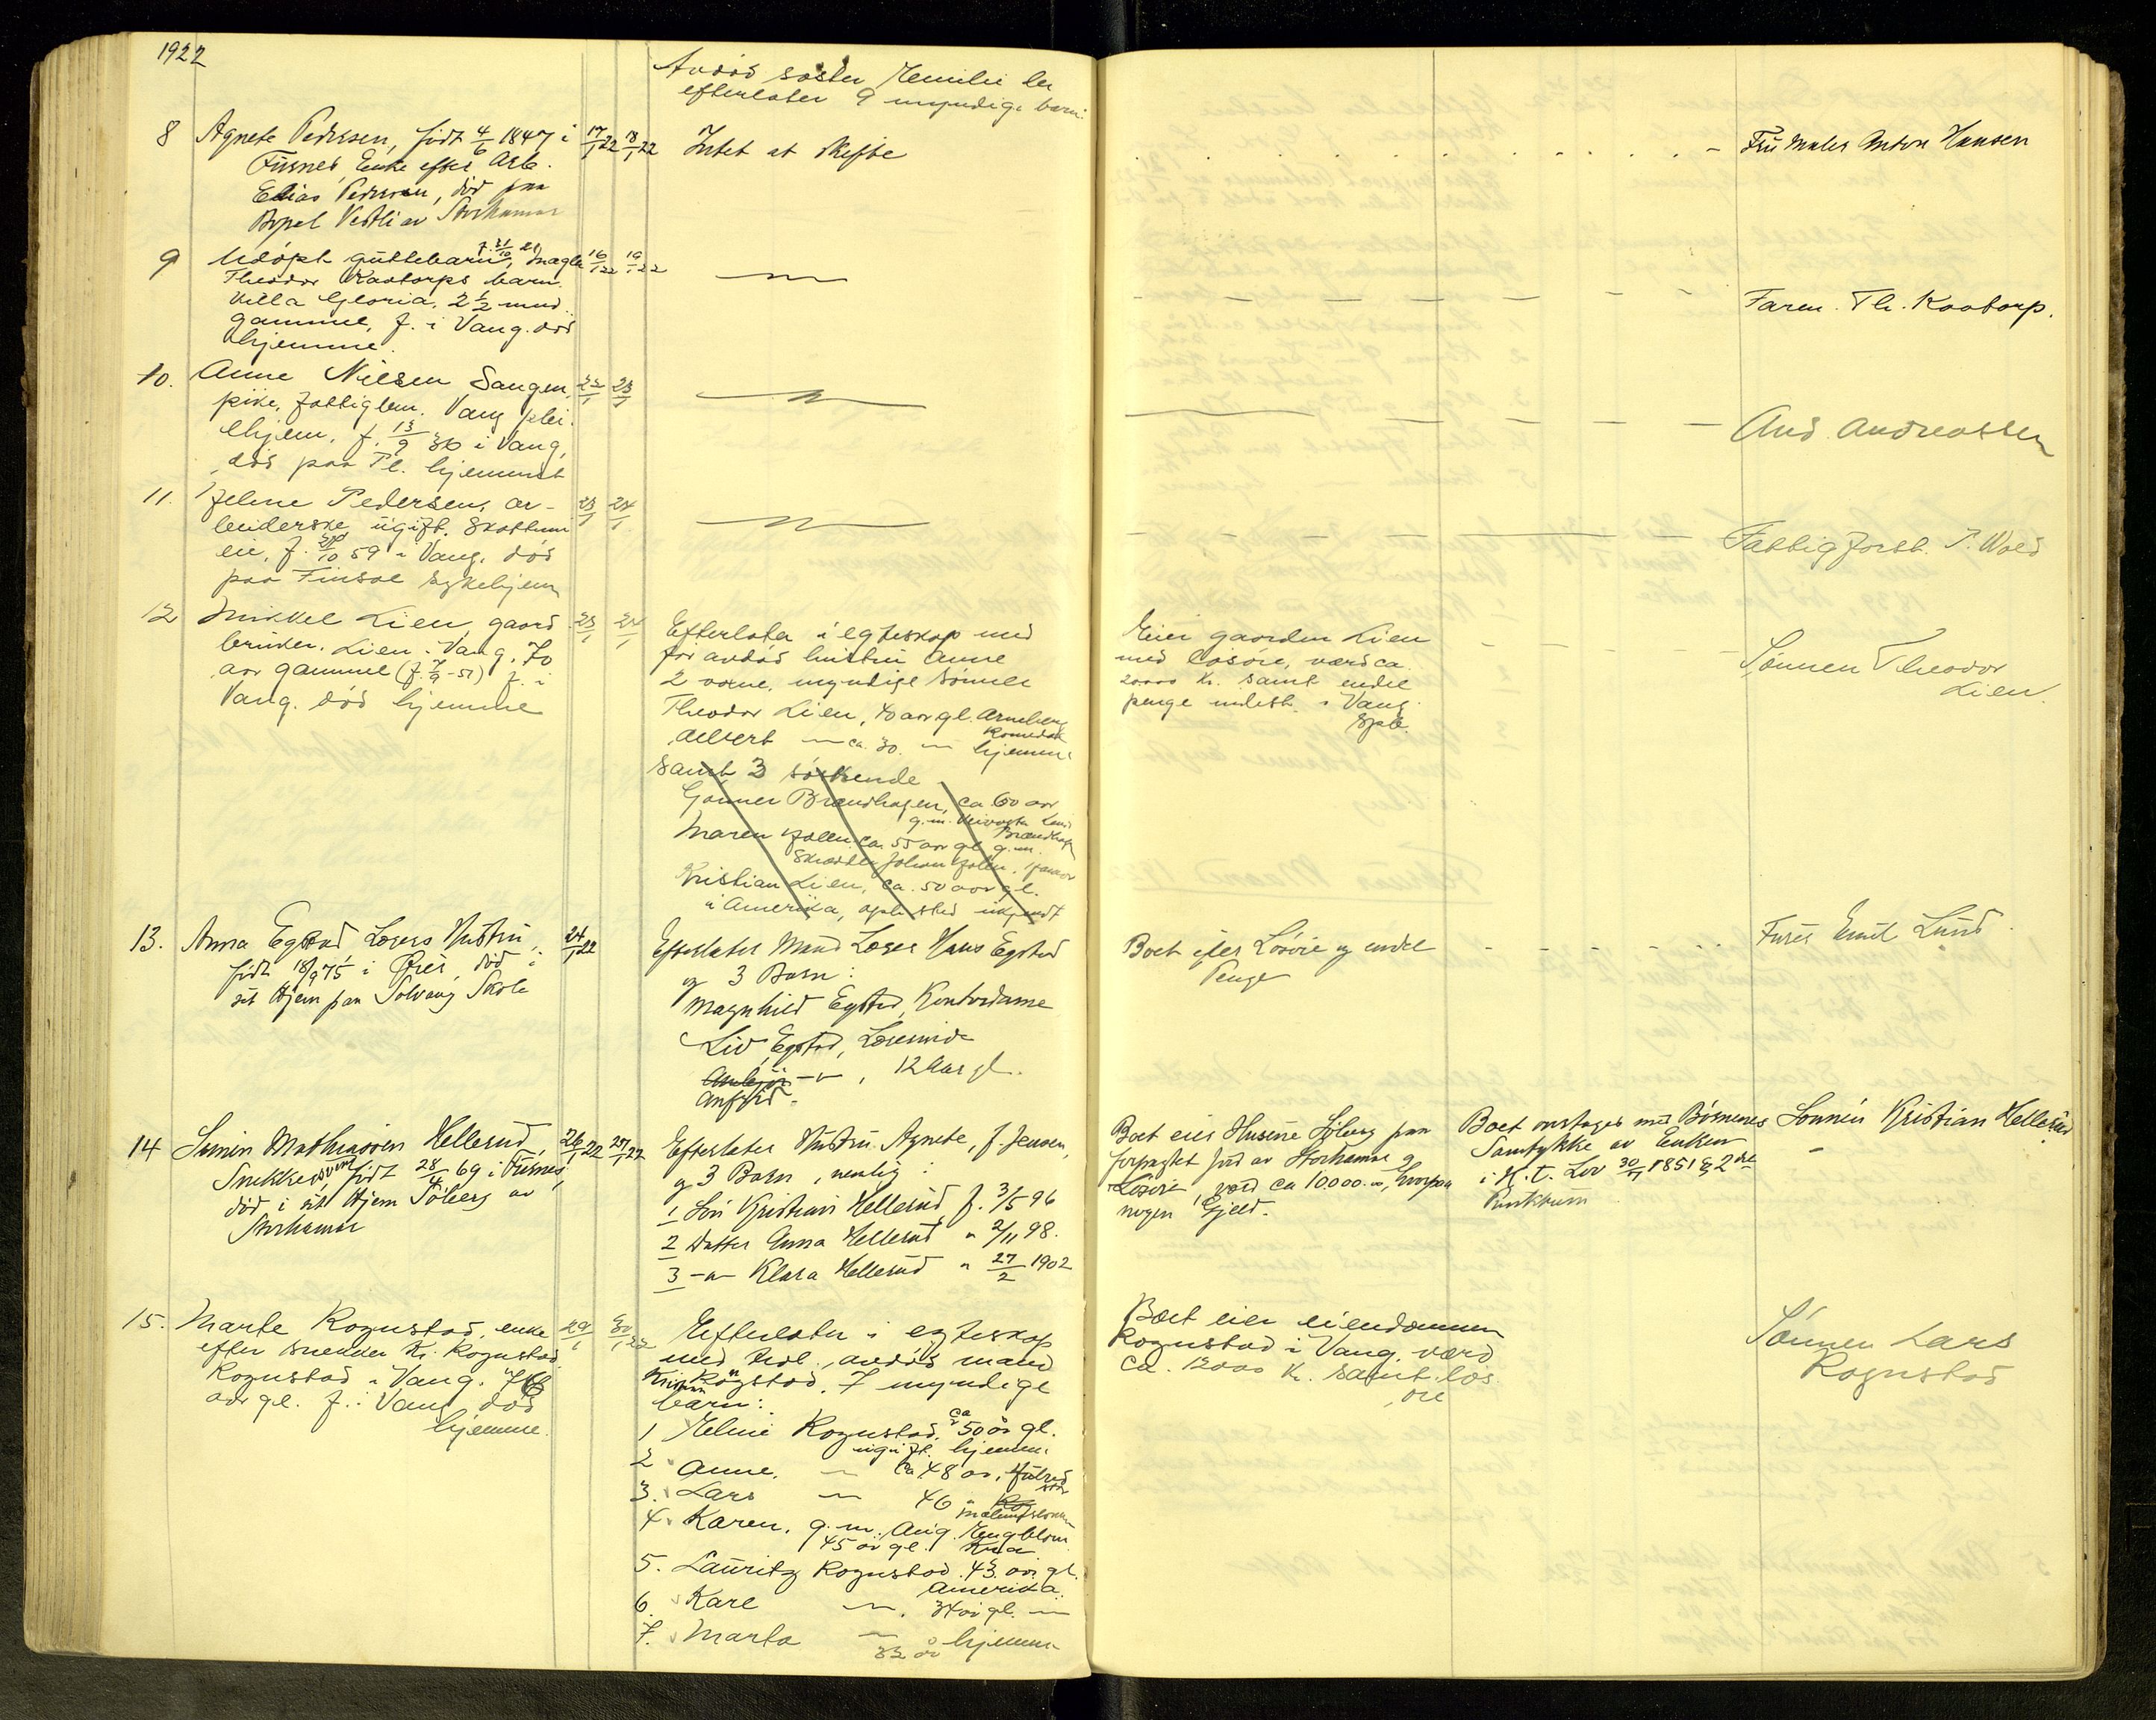 1922
Avdød søster Emilie
efterlater 9 myndige barn
8 Agnete Pedersen, født 4/6 1847 i 17/1 22 18/1 22 Intet at skifte Fru Maler Anton Hansen
Furnes, Enke efter Arb.
Elias Pedersen, død paa
Vestli av Storhamar
9 Udøpt guttebarn, 16/1 22 19/1 22
Theodor Kaatorps barn.
Villa Gloria, 2 1/2 mnd. Faren. Th. Kaatorp.
gamme, f. i Vang. død
hjemme.
10. Anne Nilsen Sangen, 22/1 23/1
pike, fattiglem. Vang plei-
ehjem, f. 13/9 36 i Vang, And. Andreassen
død paa Pl. hjemmet
11. Helene Pedersen, ar- 23/1 24/1
beiderske ugift. Skattum
eie, f. /10 59 i Vang, død Fattigforst. P. Wold
paa Finsal sykehjem
12 Mikkel Lien, gaard 23/1 24/1 Efterlater i egteskap med Eier gaarden Lien
bruker. Lien i Vang. 70 før avdød hustru Anne med løsøre, værd ca. Sønnen Theodor
aar gamme (f. 7/9 -51) f. i 2 voxne, myndige sønner 20000 Kr. samt endel Lien.
Vang. død hjemme Theodor Lien, 40 aar gl. Arneberg penge indest. i Vang
Romedal Spb.
Albert — ca. 30. — hjemme
Samt 3 søskende
Gunner Brændhagen, ca 60 aar
g.m. Brændhagen
Maren ca. 55 aar gl. g.m.
Skrædder Johan
Kristian Lien, ca. 50 aar gl.
i Amerika, opl. sted ukjendt
13. Anna Egstad Lærers Hustru, 24/1 22 Efterlater Mand Lærer Hans Egstad Boet eier Løsøre og endel Emil Lund
født 18/9 75 i Øier, død i og 3 Barn: Penge
sit Hjem paa Solvang Skole Magnhild Egstad, Kontordame
Liv Egstad, Lærerinde
— , 12 Aar gl.
14 Simen Mathiassen Hellerud, 26/1 22 27/1 22 Efterlater Hustru Agnete, f. Jensen, Boet eier Husene Søberg paa Boet overtages med Børnenes Sønnen Kristian Hellerud
Snekkersvend, født 28/4 69 i Furnes, og 3 Barn, nemlig: forpagtet Jord av Storhamar og Samtykke av Enken
død i sit Hjem Søberg av 1 Søn Kristian Hellerud f. 3/5 96 Løsøre, værd ca 10.000.-, hvorpaa i H. t. Lov 30/7 1851 § 2det
Storhamar 2 Datter Anna Hellerud " 2/11 98. nogen Gjeld. Punktum
3 — Klara Hellerud " 27/2 1902
15. Marte Rognstad, enke 29/1 30/1 22 Efterlater i egteskap Boet eier eiendommen Sønnen Lars
efter snekker Kr. Rognstad med avdød mand Rognstad i Vang. værd Rognstad
Rognstad i Vang. 76 Rognstad. 7 myndige ca. 12000 kr. samt løs
aar gl. f. i Vang død barn: øre
hjemme.
1 Eline Rognstad, ca 50 år gl.
ugift. hjemme
2 Anne. — ca 48 år,
3. Lars — 46 "
4. Karen, g.m. Aug. Engblom
45 år gl.
5. Lauritz Rognstad. 43 år gl.
Amerika
6. Karl — . 34 år gl. —
7. Marta — hjemme
32 år